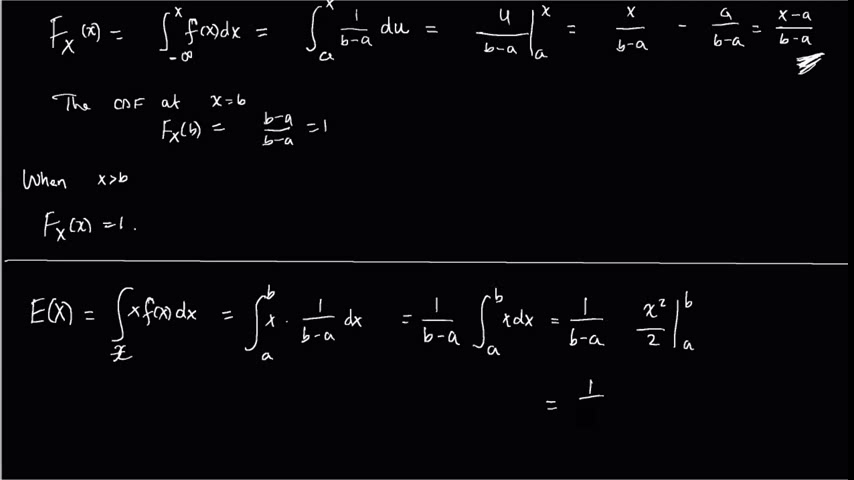 F_X(x) = ∫_{-∞}^{x} f(x)dx = ∫_{a}^{x} 1/(b-a) du = u/(b-a) |_{a}^{x} = x/(b-a) - a/(b-a) = (x-a)/(b-a)
The CDF at x=b
F_X(b) = (b-a)/(b-a) = 1
When x>b
F_X(x) = 1.
E(X) = ∫_{x} x f(x) dx = ∫_{a}^{b} x · 1/(b-a) dx = 1/(b-a) ∫_{a}^{b} x dx = 1/(b-a) x²/2 |_{a}^{b}
= 1/